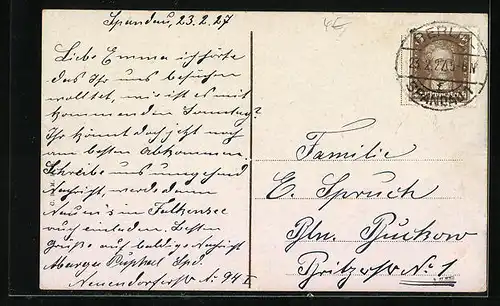 Spandau, 23.2.27
Liebe Emma ich hörte
das Ihr uns besuchen
wolltet, wie ist es mit
kommenden Sonntag?
Ihr könnt doch jetzt noch
am besten abkommen.
Schreibe uns umgehend
Nachricht, werde dann
in Falkensee
auch einladen. Besten
Grüße auf baldige Nachricht
Spd.
Neuendorferstr N: 94 I
4E
BERLIN
SPANDAU
Familie
E. Spruch
Bln. Buckow
Britzerstr No 1